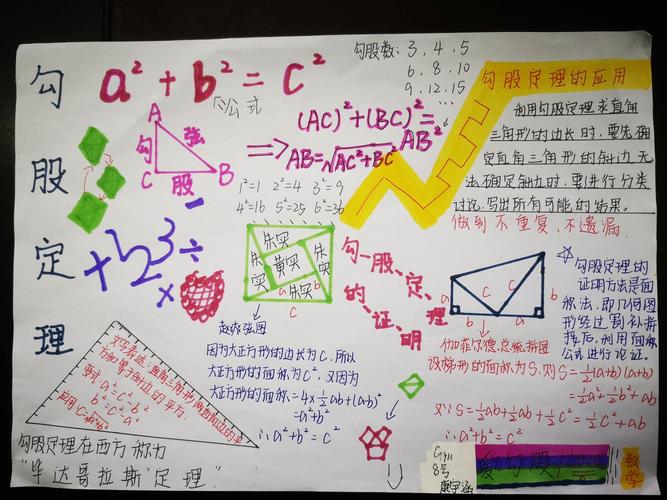 勾股定理
a² + b² = c²
公式
勾股数: 3, 4, 5
6, 8, 10
9, 12, 15
...
A
勾
弦
C
股
B
(AC)²+(BC)²=
AB²
⇒ AB=√AC²+BC²
1²=1 2²=4 3²=9
4²=16 5²=25 6²=36
勾股定理的应用
利用勾股定理求直角
三角形的边长时,要先确
定直角三角形的斜边,无
法确定斜边时,要进行分类
讨论,写出所有可能的结果。
做到不重复、不遗漏
+123÷
-
×
朱实
朱实
黄实
朱实
朱实
a
b
c
赵爽弦图
勾、股、定、理
的、证、明
因为大正方形的边长为C,所以
大正方形的面积为C²,又因为
大正方形的面积=4×½ab+(a-b)²
=a²+b²
∴a²+b²=c²
a
c
c
b
b
a
伽菲尔德总统拼图
设梯形的面积为S,则S=½(a+b)(a+b)
=½a²+½b²+ab
又∵S=½ab+½ab+½c²=½c²+ab
∴a²+b²=c²
☆勾股定理的
证明方法是面
积法,即几何图
形经过割补拼
接后,利用面积
公式进行论证。
文字表达:直角三角形两直角边的平
方和等于斜边的平方.
变式:a²=c²-b²
b²=c²-a²
应用
勾股定理在西方称为
"毕达哥拉斯"定理"
8号
爱勾股
数学